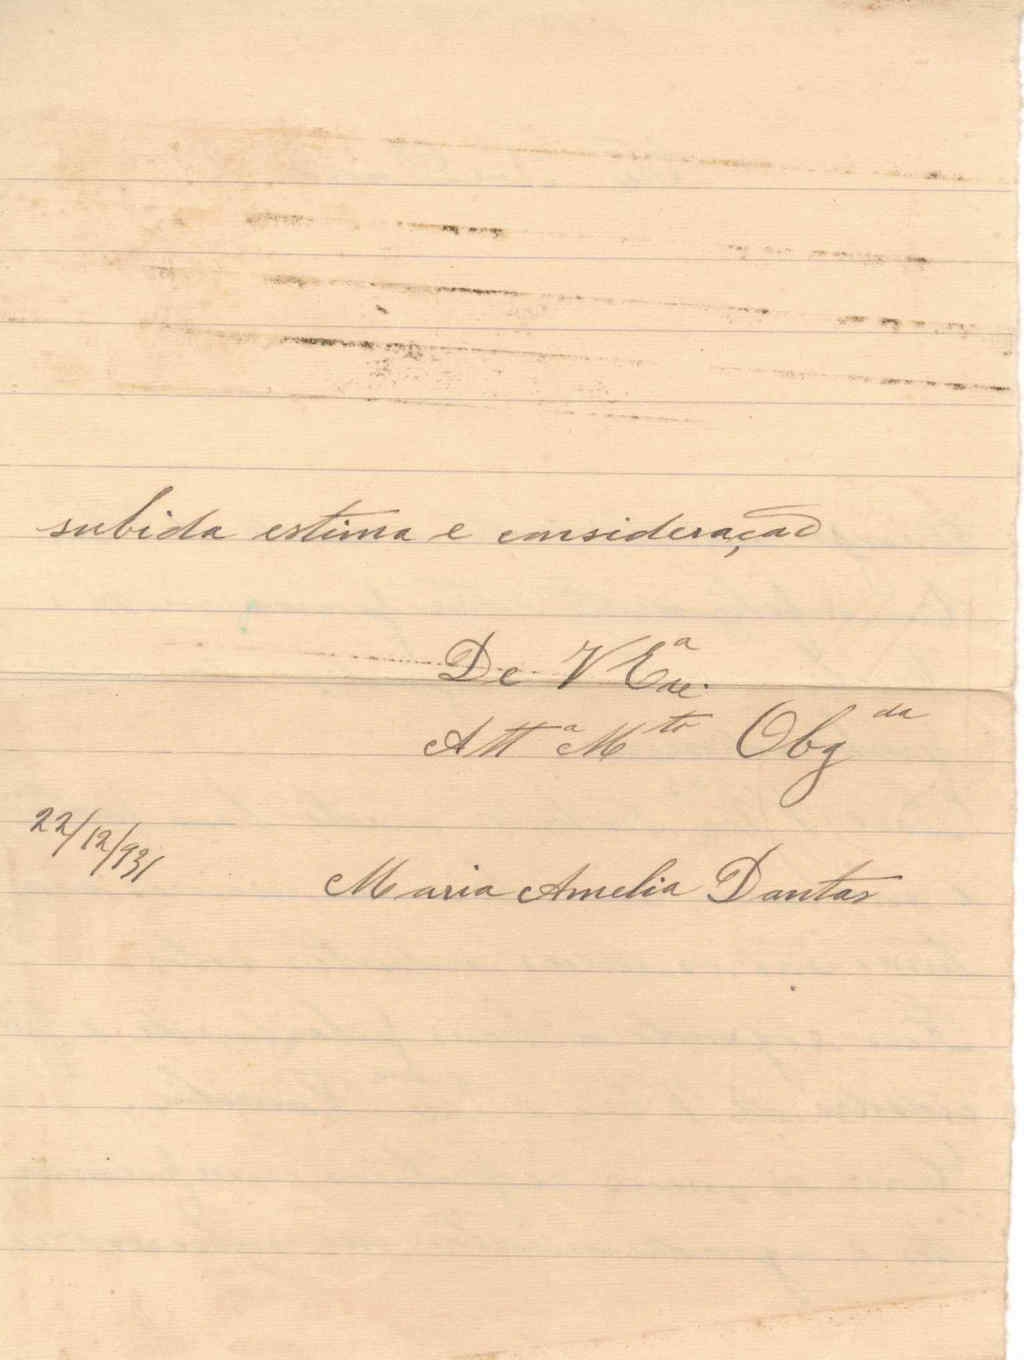 subida estima e consideração
De V Exª
Attª Mto Obgda
22/12/931
Maria Amelia Dantas